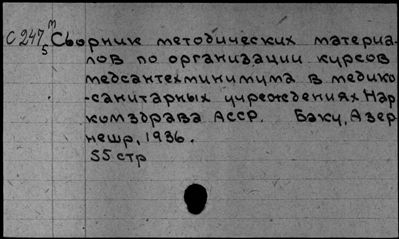 С 247 м Сборник методических материа-
5 лов по организации курсов
медсантехминимума в медико
-санитарных учреждениях Нар
комздрава АССР. Баку, Азер
нешр, 1936.
55 стр